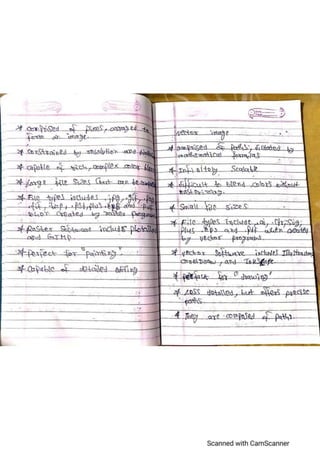 * comprised of pixels, arranged to
form an image.
* constrained by resolution and
* capable of rich, complex color
* Large file sizes that can be
* File types includes .jpg, .gif,
.tif, .bmp, .psd, plus .eps and .pdf
when created by raster programs
* Raster software includes photoshop
and GIMP
* perfect for "painting"
* capable of detailed editing
vector image
* comprised of paths, dictated by
mathematical formulas
* Infinitely scalable
* difficult to blend colors without
rasterizing.
* Small file sizes
* File types include .ai, .cdr, .svg,
plus .eps and .pdf when created
by vector programs.
* vector software includes Illustrator,
CorelDraw, and InkScape.
* perfect for "drawing"
* LESS detailed, but offers precise
paths
* They are composed of paths.
Scanned with CamScanner